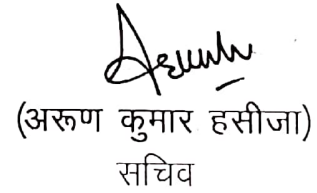 (अरूण कुमार हसीजा)
सचिव